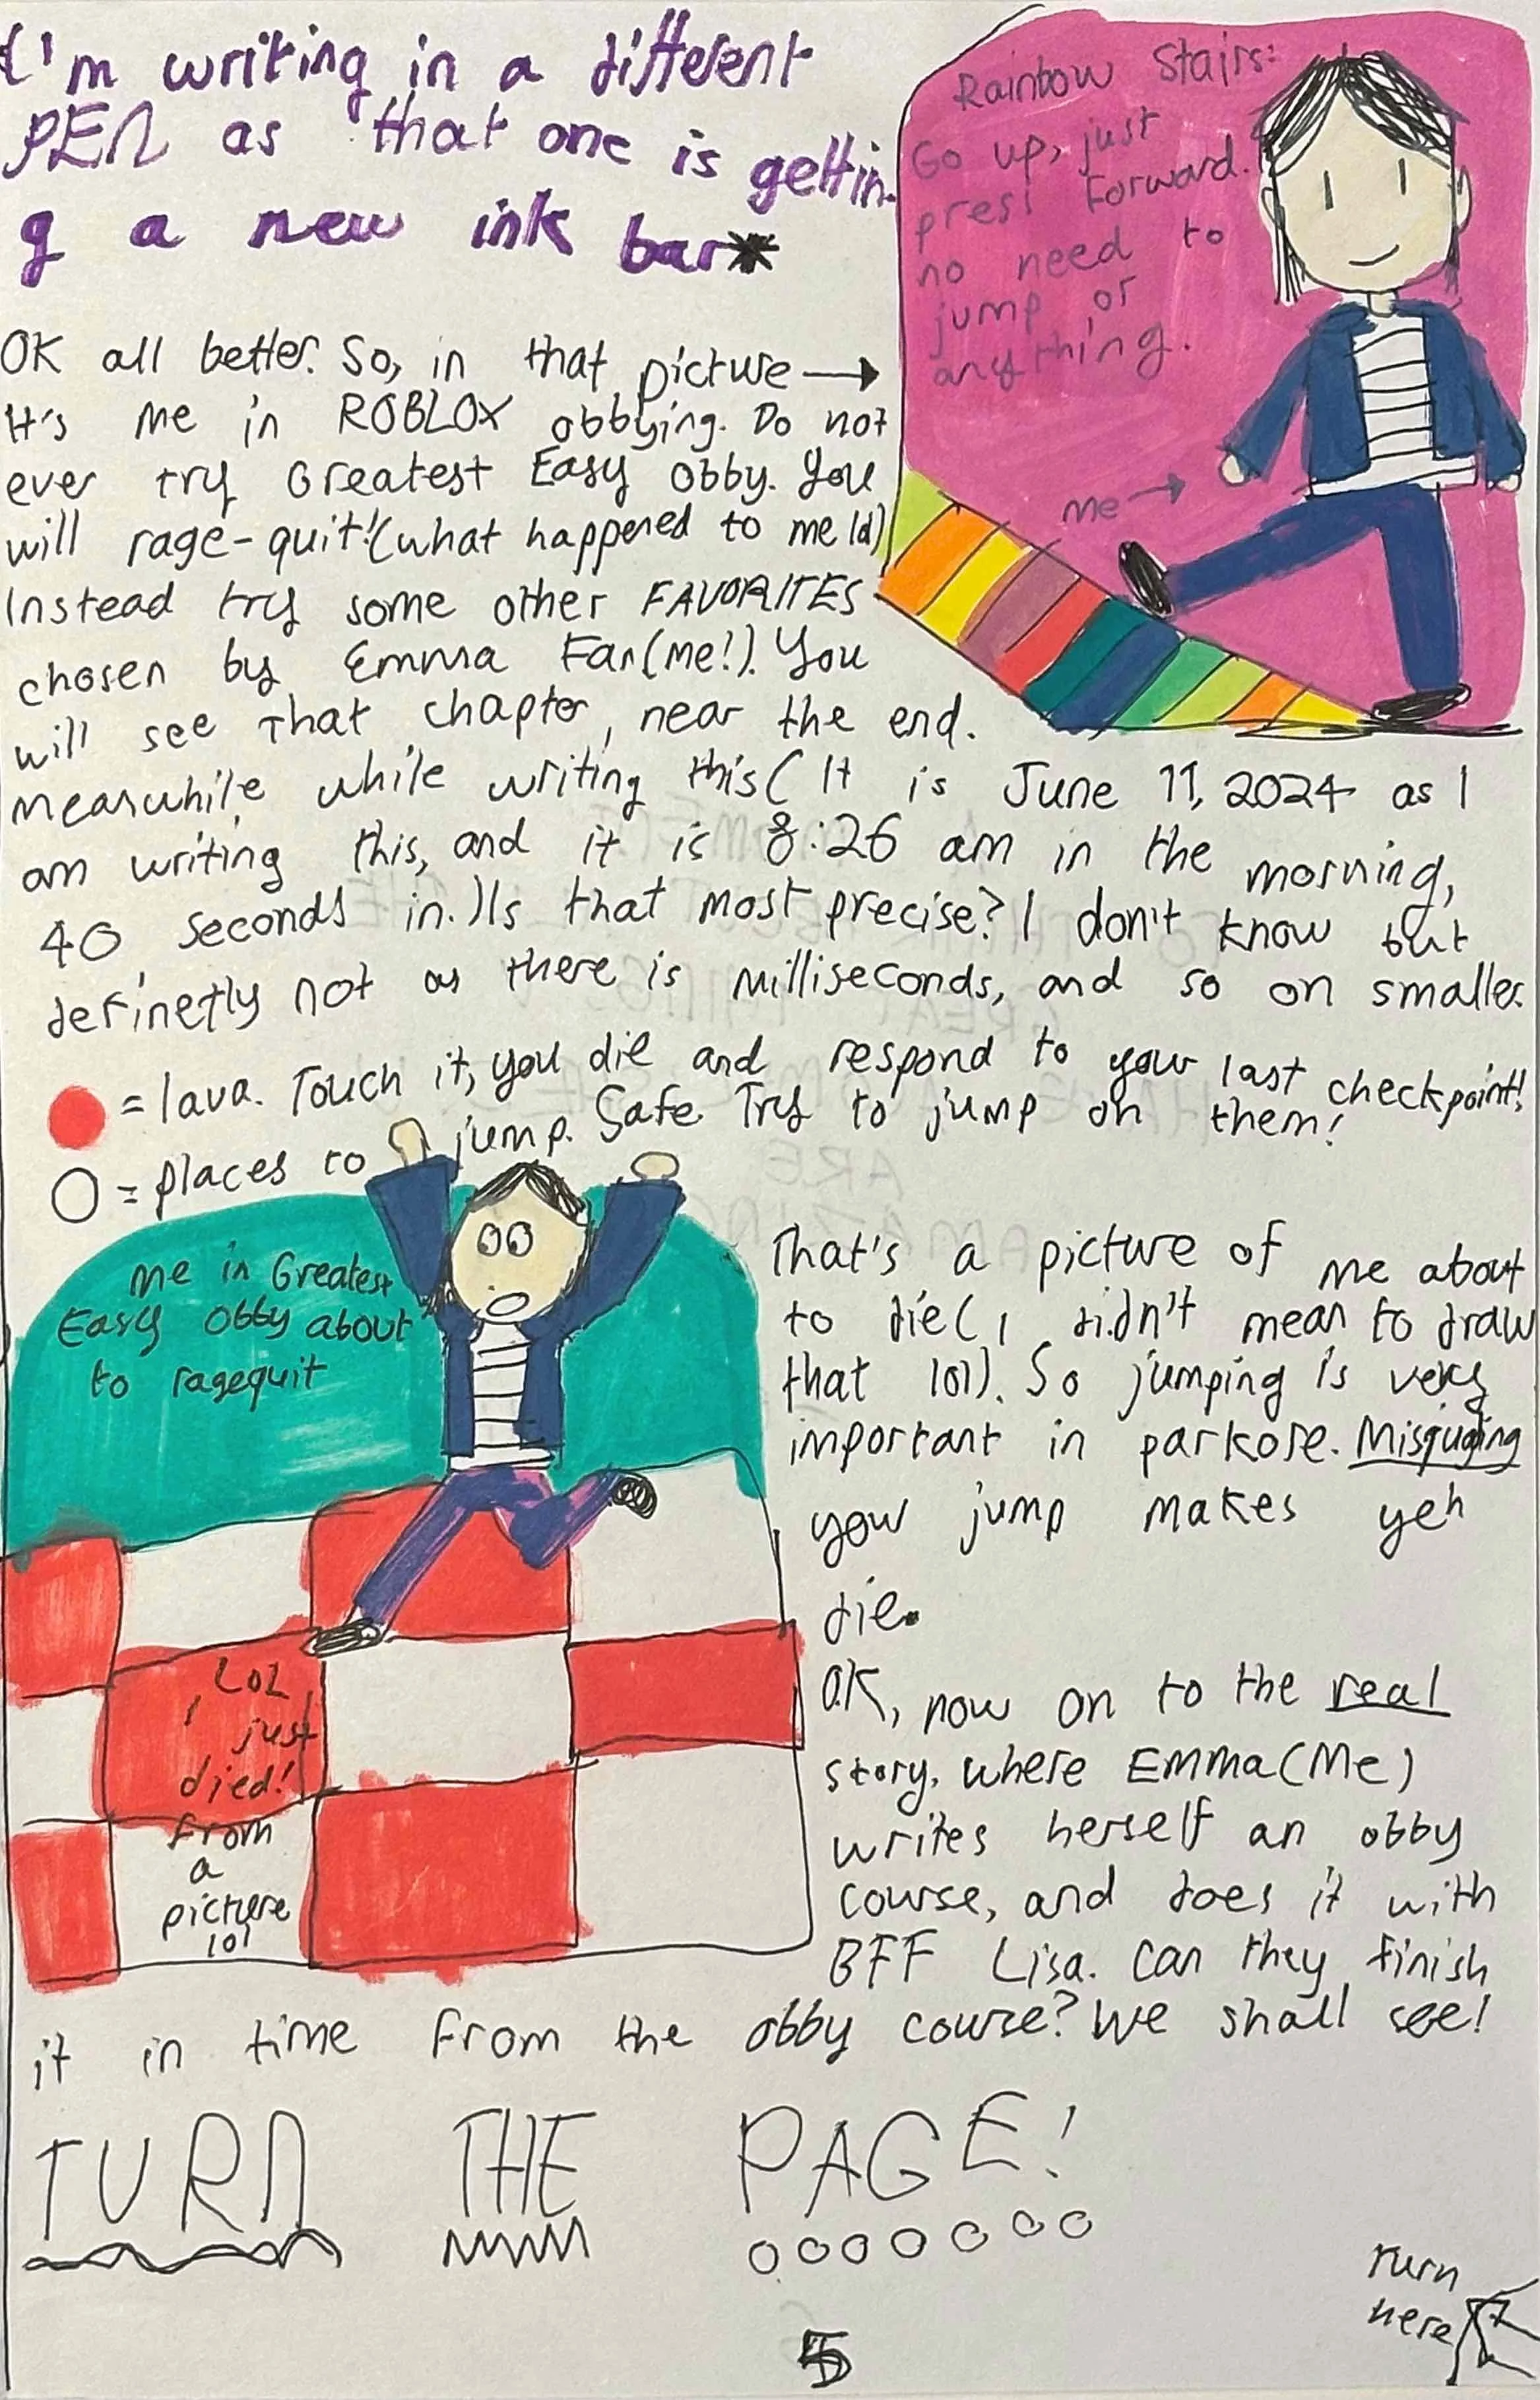 I'm writing in a different
PEN as that one is gettin-
g a new ink bar*
Rainbow Stairs:
Go up, just
press forward.
no need to
jump or
anything.
Me →
OK all better. So, in that picture →
It's me in ROBLOX obbying. Do not
ever try Greatest Easy Obby. You
will rage-quit! (what happened to me lol)
Instead try some other FAVORITES
chosen by Emma Fan(me!). You
will see that chapter, near the end.
Meanwhile, while writing this( It is June 11, 2024 as I
am writing this, and it is 8:26 am in the morning,
40 seconds in.) Is that most precise? I don't know but
definetly not as there is milliseconds, and so on smaller.
= lava. Touch it, you die and respond to your last checkpoint!
= places to jump. Safe. Try to jump on them!
Me in Greatest
Easy Obby about
to ragequit
LOL
I just
died!
From
a
picture
lol
That's a picture of me about
to die( I didn't mean to draw
that lol). So jumping is very
important in parkore. Misguging
your jump makes yeh
die.
OK, now on to the real
story, where Emma(Me)
writes herself an obby
course, and does it with
BFF Lisa. Can they finish
it in time from the obby course? We shall see!
TURN THE PAGE!
Turn
here
5